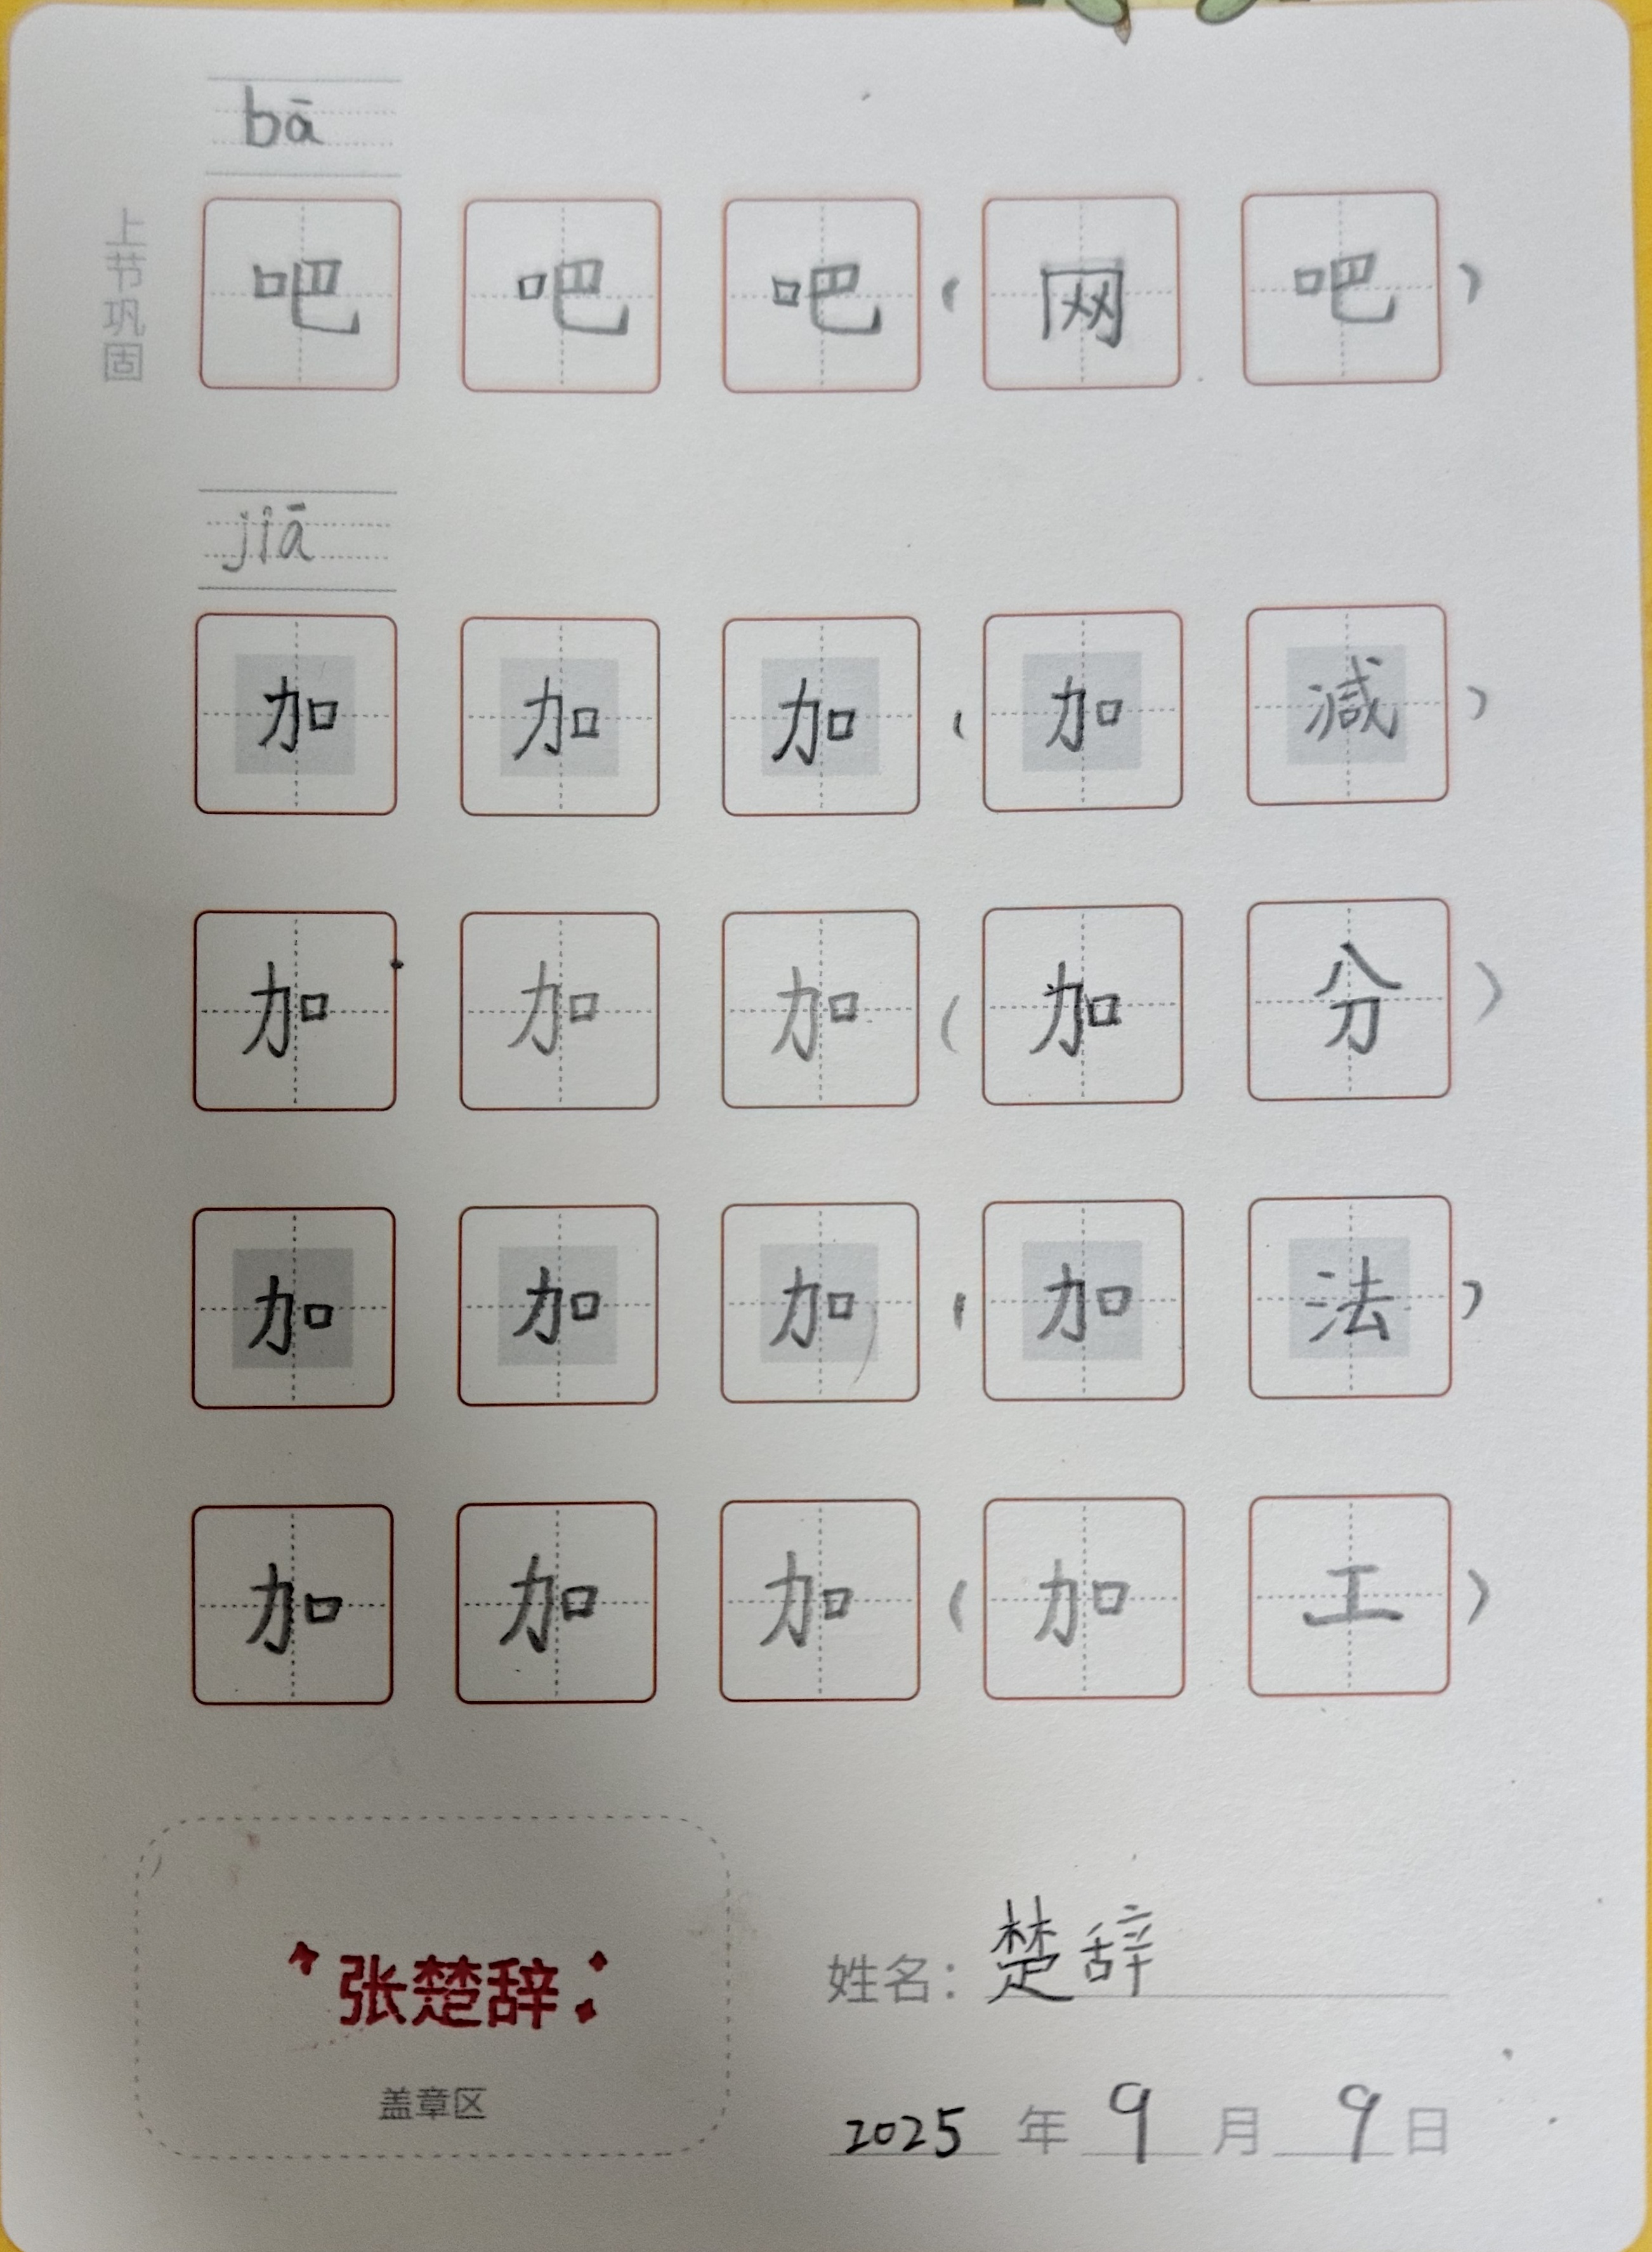 bā
上节巩固
吧 吧 吧 ( 网 吧 )
jiā
加 加 加 ( 加 减 )
加 加 加 ( 加 分 )
加 加 加 ( 加 法 )
加 加 加 ( 加 工 )
张楚辞
盖章区
姓名: 楚辞
2025 年 9 月 9 日